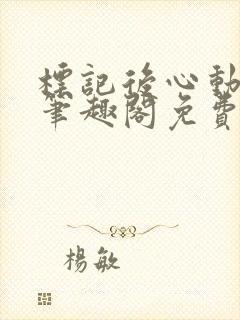 標記後心動
筆趣閣免費
楊敏